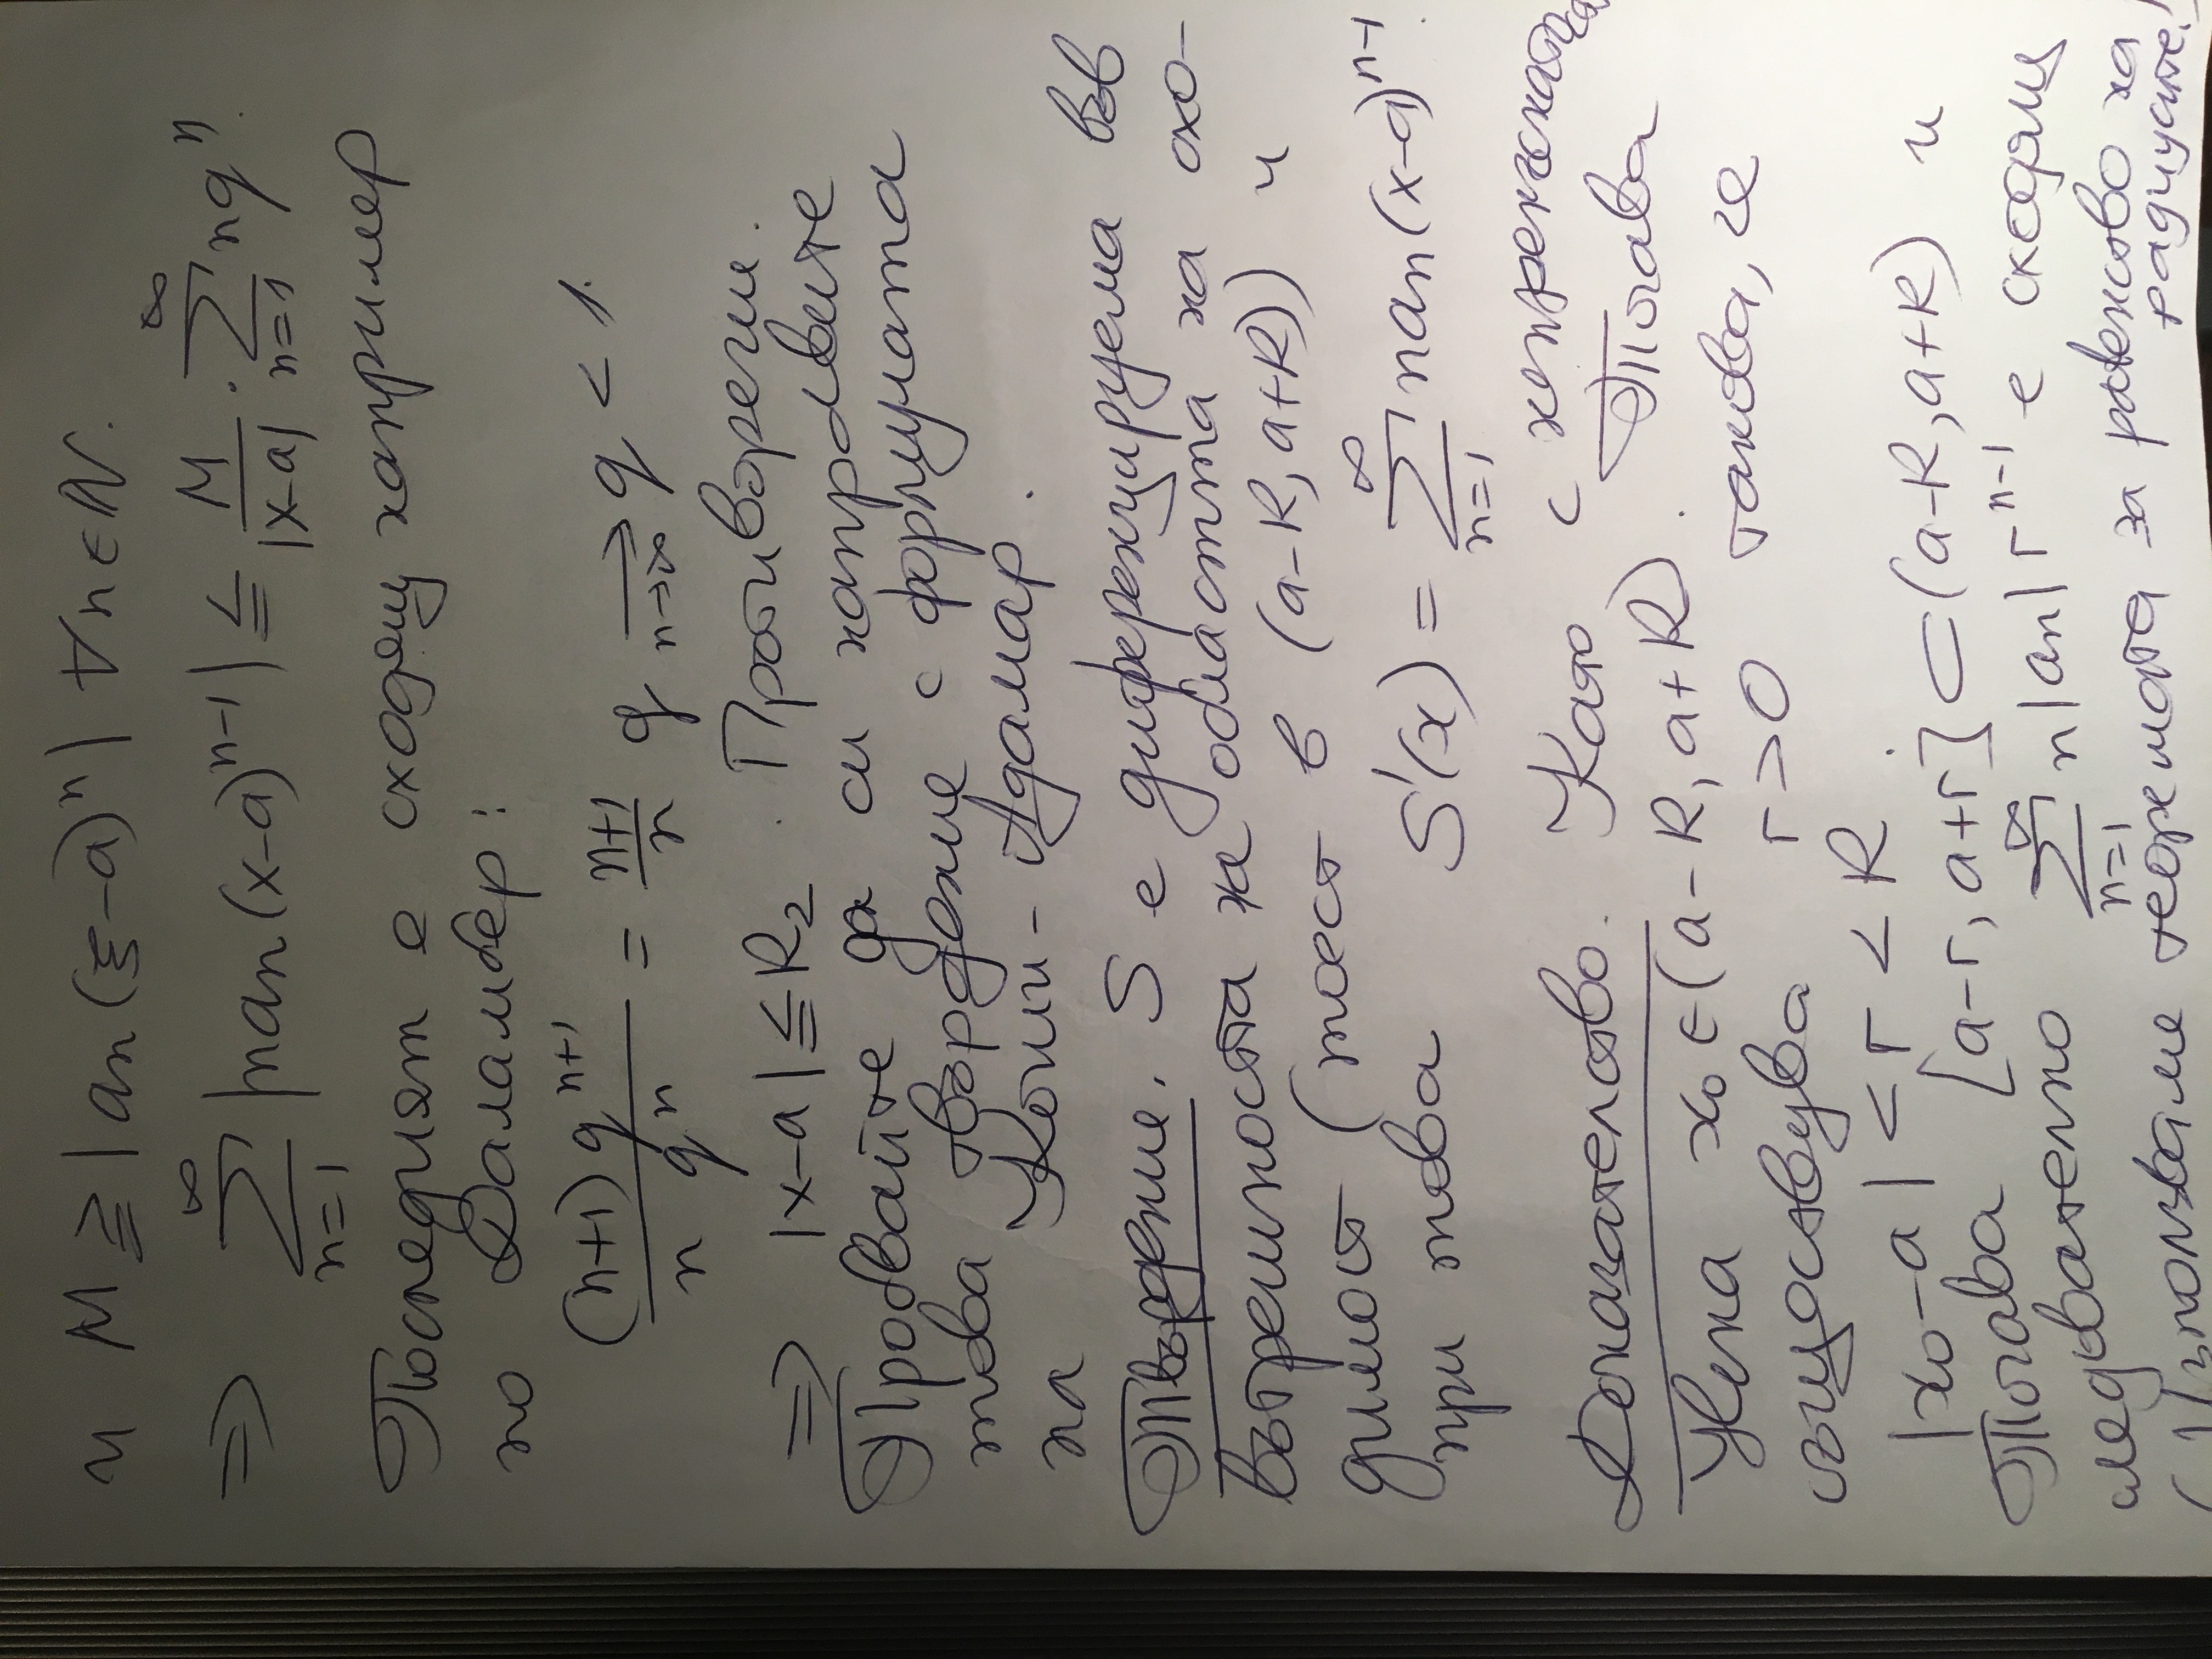 и M ≧ |an(ξ-a)^n| ∀n∈ℕ.
⇒ ∑_{n=1}^∞ |nan(x-a)^{n-1}| ≦ M/|x-a| · ∑_{n=1}^∞ nq^n.
Последният е сходящ например
по Даламбер:
(n+1)q^{n+1}/(n q^n) = (n+1)/n q →_{n→∞} q < 1.
⇒ |x-a| ≦ R₂. Противоречие.
Пробвайте да си направите
това твърдение с формулата
на Коши-Адамар.
Твърдение. S е диференцируема във
вътрешността на областта на схо-
димост (тоест в (a-R, a+R)) и
при това S'(x) = ∑_{n=1}^∞ nan(x-a)^{n-1}.
Доказателство. Като с непрекъснатостта
Нека x₀∈(a-R, a+R). Тогава
съществува r>0 такова, че
|x₀-a| < r < R.
Тогава [a-r, a+r] ⊂ (a-R, a+R) и
следователно ∑_{n=1}^∞ n|an|r^{n-1} е сходящ
(Използваме теоремата за равенство на
радиусите!)